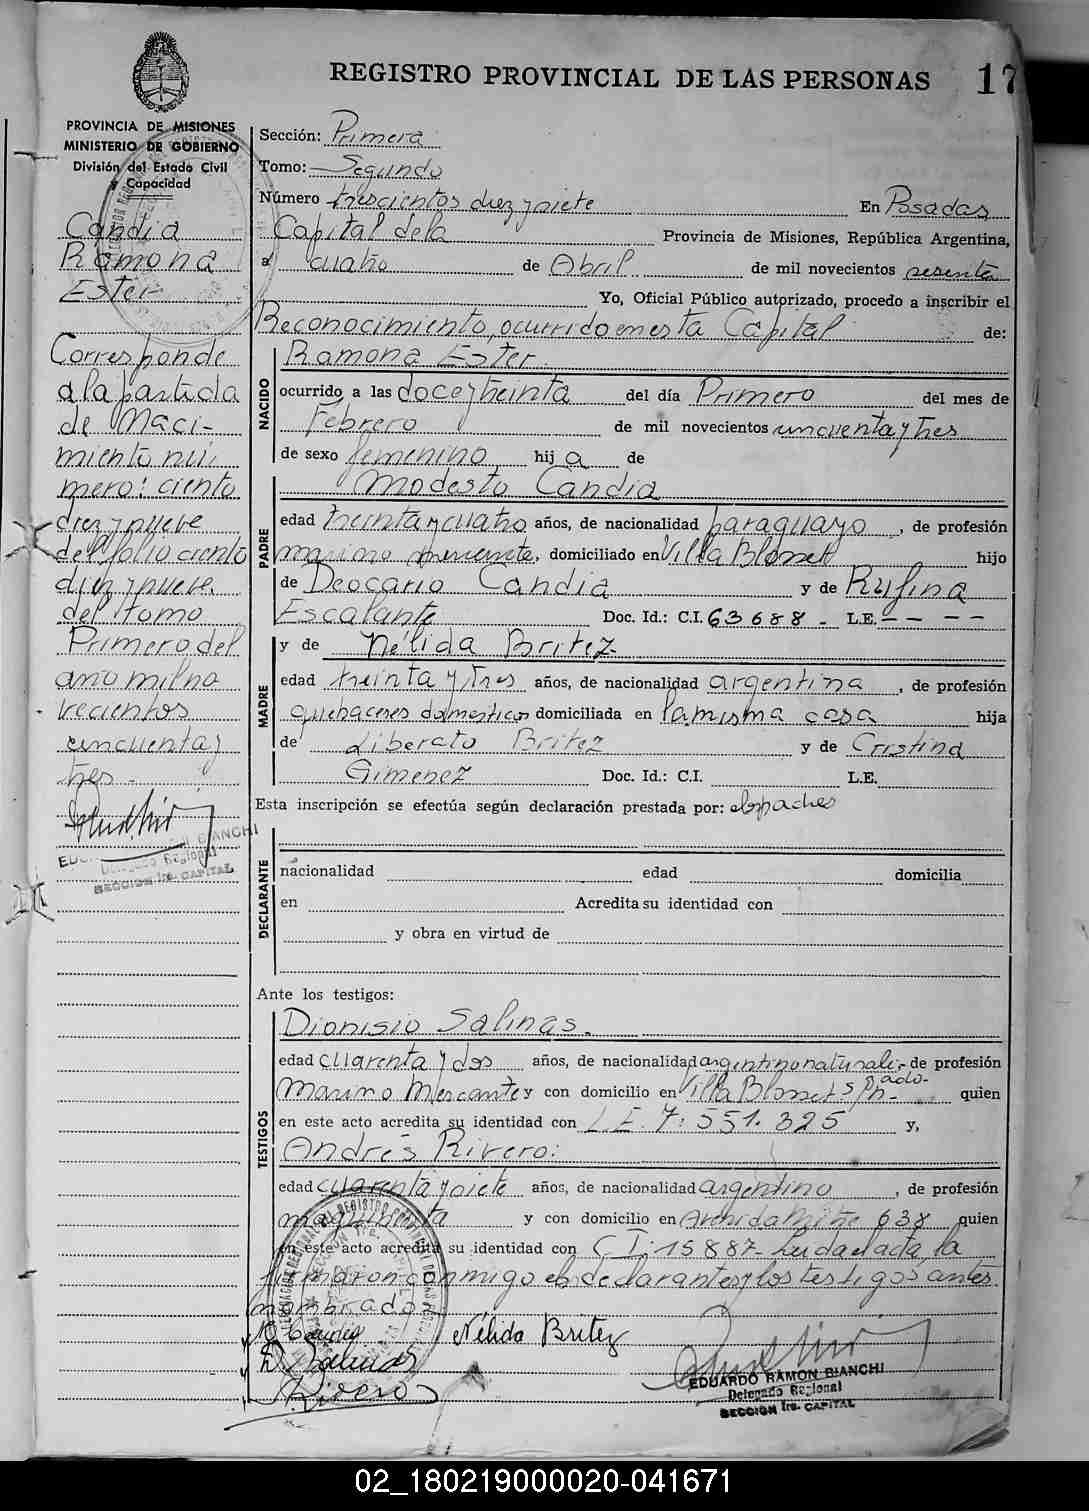 REGISTRO PROVINCIAL DE LAS PERSONAS 17
PROVINCIA DE MISIONES
MINISTERIO DE GOBIERNO
División del Estado Civil
y Capacidad
Candia
Ramona
Ester
Corresponde
a la partida
de Naci-
miento nú-
mero: ciento
diez y nueve
del folio ciento
diez y nueve
del tomo
Primero del
año mil no
vecientos
cincuenta y
tres.-
EDUARDO RAMON BIANCHI
Delegado Regional
SECCION 1ra. CAPITAL
Sección: Primera
Tomo: Segundo
Número trescientos diez y siete En Posadas
Capital de la Provincia de Misiones, República Argentina,
a cuatro de Abril de mil novecientos sesenta
Yo, Oficial Público autorizado, procedo a inscribir el
Reconocimiento, ocurrido en esta Capital de:
NACIDO
Ramona Ester
ocurrido a las doce y treinta del día Primero del mes de
Febrero de mil novecientos cincuenta y tres
de sexo femenino hija de
PADRE
Modesto Candia
edad treinta y cuatro años, de nacionalidad paraguayo, de profesión
marino mercante, domiciliado en Villa Blosset hijo
de Deocario Candia y de Rufina
Escalante Doc. Id.: C.I. 63688.- L.E. -- --
MADRE
y de Nélida Britez
edad treinta y tres años, de nacionalidad argentina, de profesión
quehaceres domesticos domiciliada en la misma casa hija
de Liberato Britez y de Cristina
Gimenez Doc. Id.: C.I. L.E.
Esta inscripción se efectúa según declaración prestada por: los padres
DECLARANTE
nacionalidad edad domicilia
en Acredita su identidad con
y obra en virtud de
Ante los testigos:
TESTIGOS
Dionisio Salinas.
edad cuarenta y dos años, de nacionalidad argentino naturali- de profesión
zado-
Marino Mercante y con domicilio en Villa Blosset s/n- quien
en este acto acredita su identidad con L.E. 7.551.325 y,
Andrés Rivero:
edad cuarenta y siete años, de nacionalidad argentino, de profesión
maquinista y con domicilio en Avenida Mitre 638 quien
en este acto acredita su identidad con C.I: 15887- Leída el acta, la
firmaron conmigo el declarantes y los testigos antes
nombrados
M Candia Nélida Britez
D Salinas
Rivero
EDUARDO RAMON BIANCHI
Delegado Regional
SECCION 1ra. CAPITAL
02_180219000020-041671